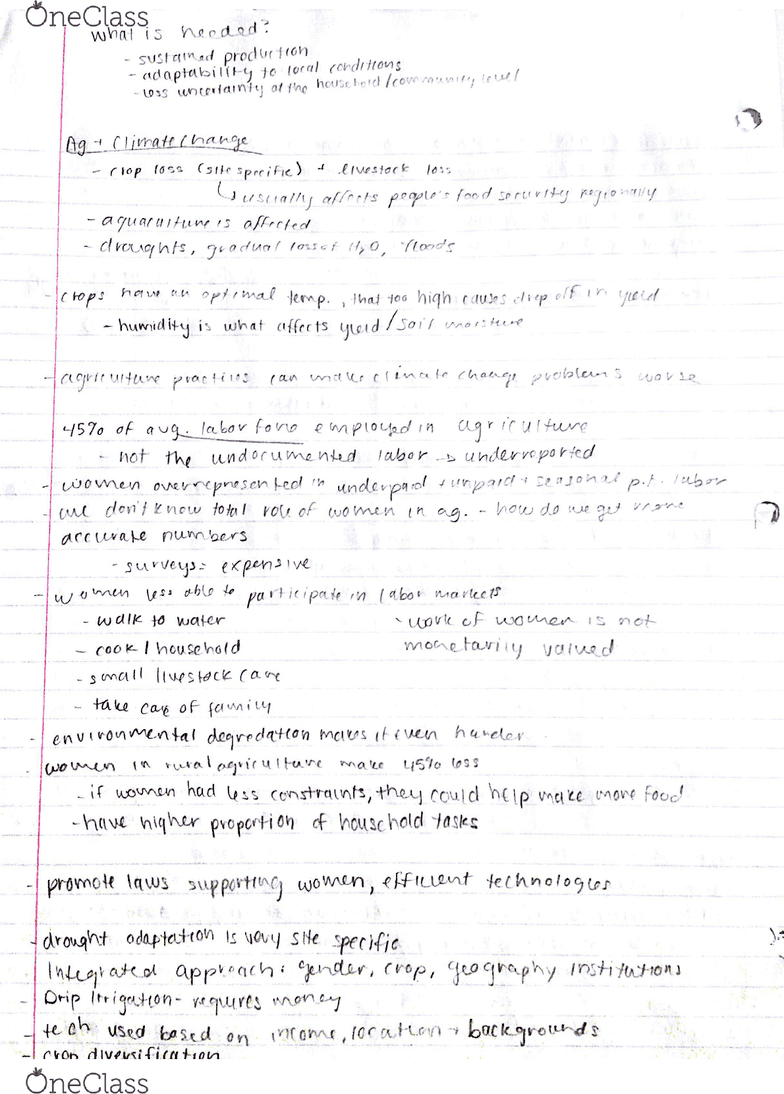 OneClass
what is needed?
- sustained production
- adaptability to local conditions
- less uncertainty at the household/community level
Ag + Climate Change
- crop loss (site specific) + livestock loss
↳ usually affects people's food security regionally
- aquaculture is affected
- droughts, gradual loss of H2O, floods
- crops have an optimal temp., that too high causes drop off in yield
- humidity is what affects yield/soil moisture
- agriculture practices can make climate change problems worse
45% of avg. labor force employed in agriculture
- not the undocumented labor → underreported
- women overrepresented in underpaid + unpaid + seasonal p.t. labor
- we don't know total role of women in ag. - how do we get more
accurate numbers
- surveys= expensive
- women less able to participate in labor markets
- walk to water
- work of women is not
- cook / household
monetarily valued
- small livestock care
- take care of family
- environmental degredation makes it even harder
- women in rural agriculture make 45% less
- if women had less constraints, they could help make more food
- have higher proportion of household tasks
- promote laws supporting women, efficient technologies
- drought adaptation is very site specific
Integrated approach: gender, crop, geography institutions
- Drip Irrigation- requires money
- tech used based on income, location + backgrounds
- crop diversification
OneClass